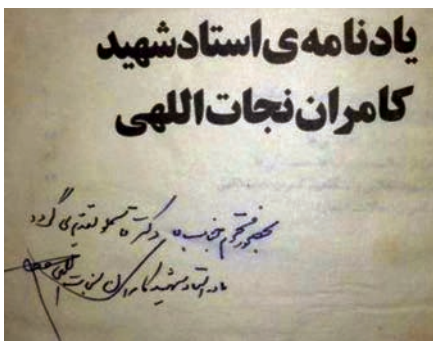 یادنامه‌ی استاد شهید
کامران نجات‌اللهی
بحضور محترم جناب دکتر قاسملو تقدیم می گردد
مادر استاد شهید کامران نجات اللهی